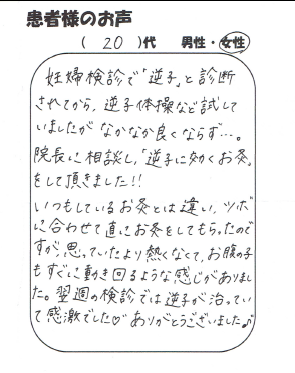 患者様のお声
( 20 )代 男性・女性
妊婦検診で「逆子」と診断
されてから、逆子体操など試して
いましたが なかなか良くならず…。
院長に相談し、「逆子に効くお灸」
をして頂きました!!
いつもしているお灸とは違い、ツボ
に合わせて直にお灸をしてもらったので
すが、思っていたより熱くなくて、お腹の子
もすぐに動き回るような感じがありまし
た。翌週の検診では逆子が治ってい
て感激でした♡ ありがとうございました♪